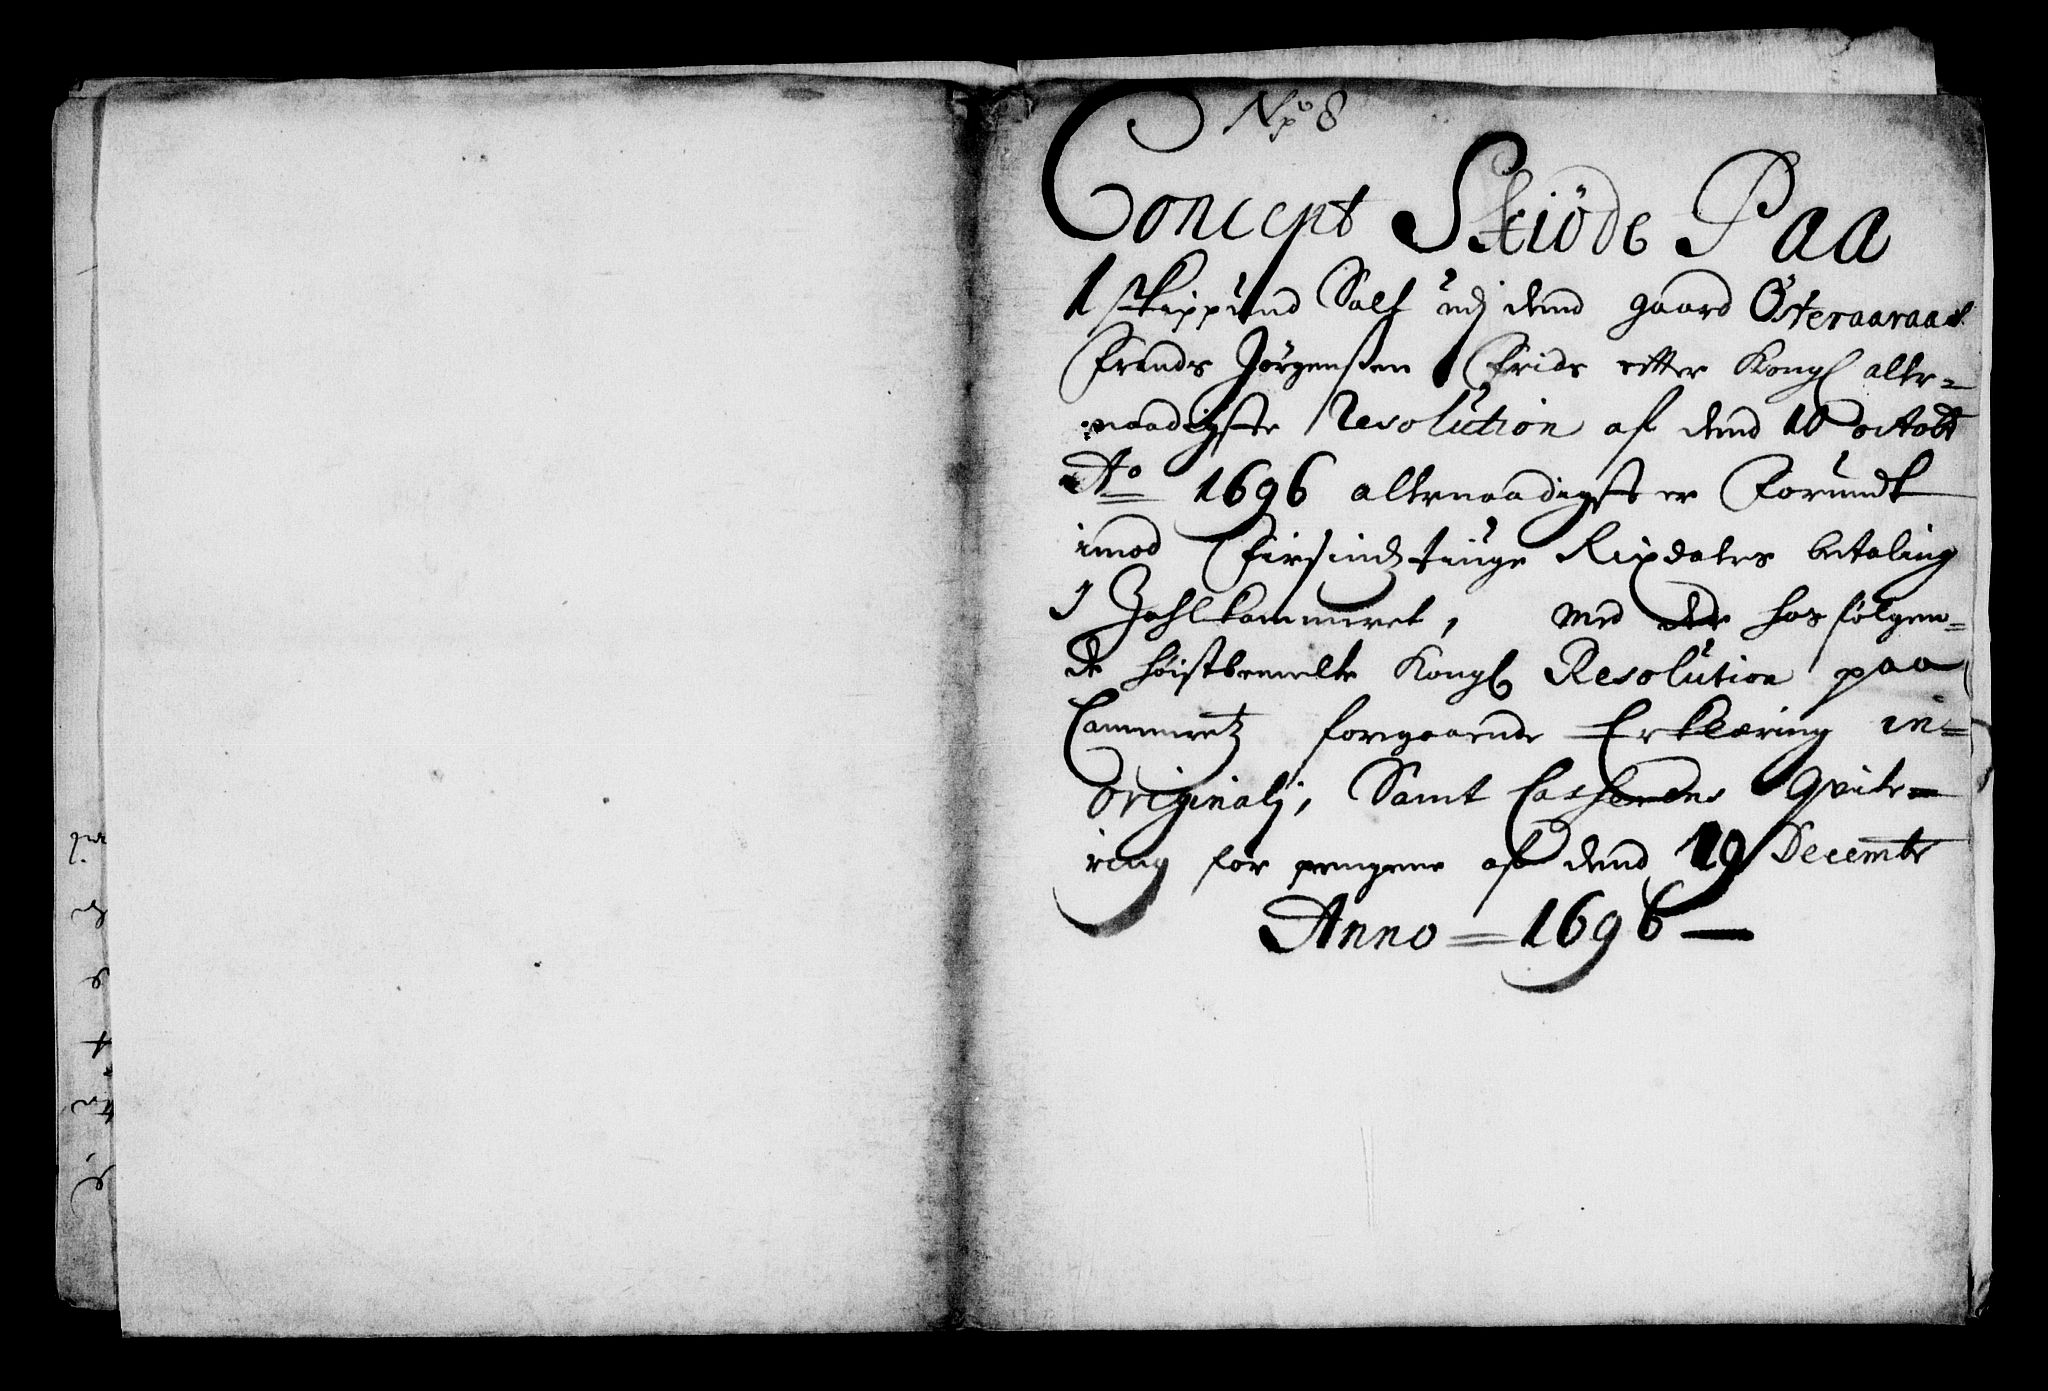 No 8
Concept Skiöde Paa
1 skippund Salt udj dend gaard Österaaraat
Frands Jörgensen Friis efter Kongl aller=
naadigste Resolution af dend 10 octobr
Ao 1696 allernaadigst er Forundt
imod Firsindztiuge Rixdalers betaling
J Zahlkammeret, Med der hosfølgen=
de høistbemelte Kongl Resolution paa
Cammeretz foregaaende Erklæring in=
Originalj, Samt Casserens Qvite=
ring for pengene af dend 19 Decembr
Anno = 1696 —